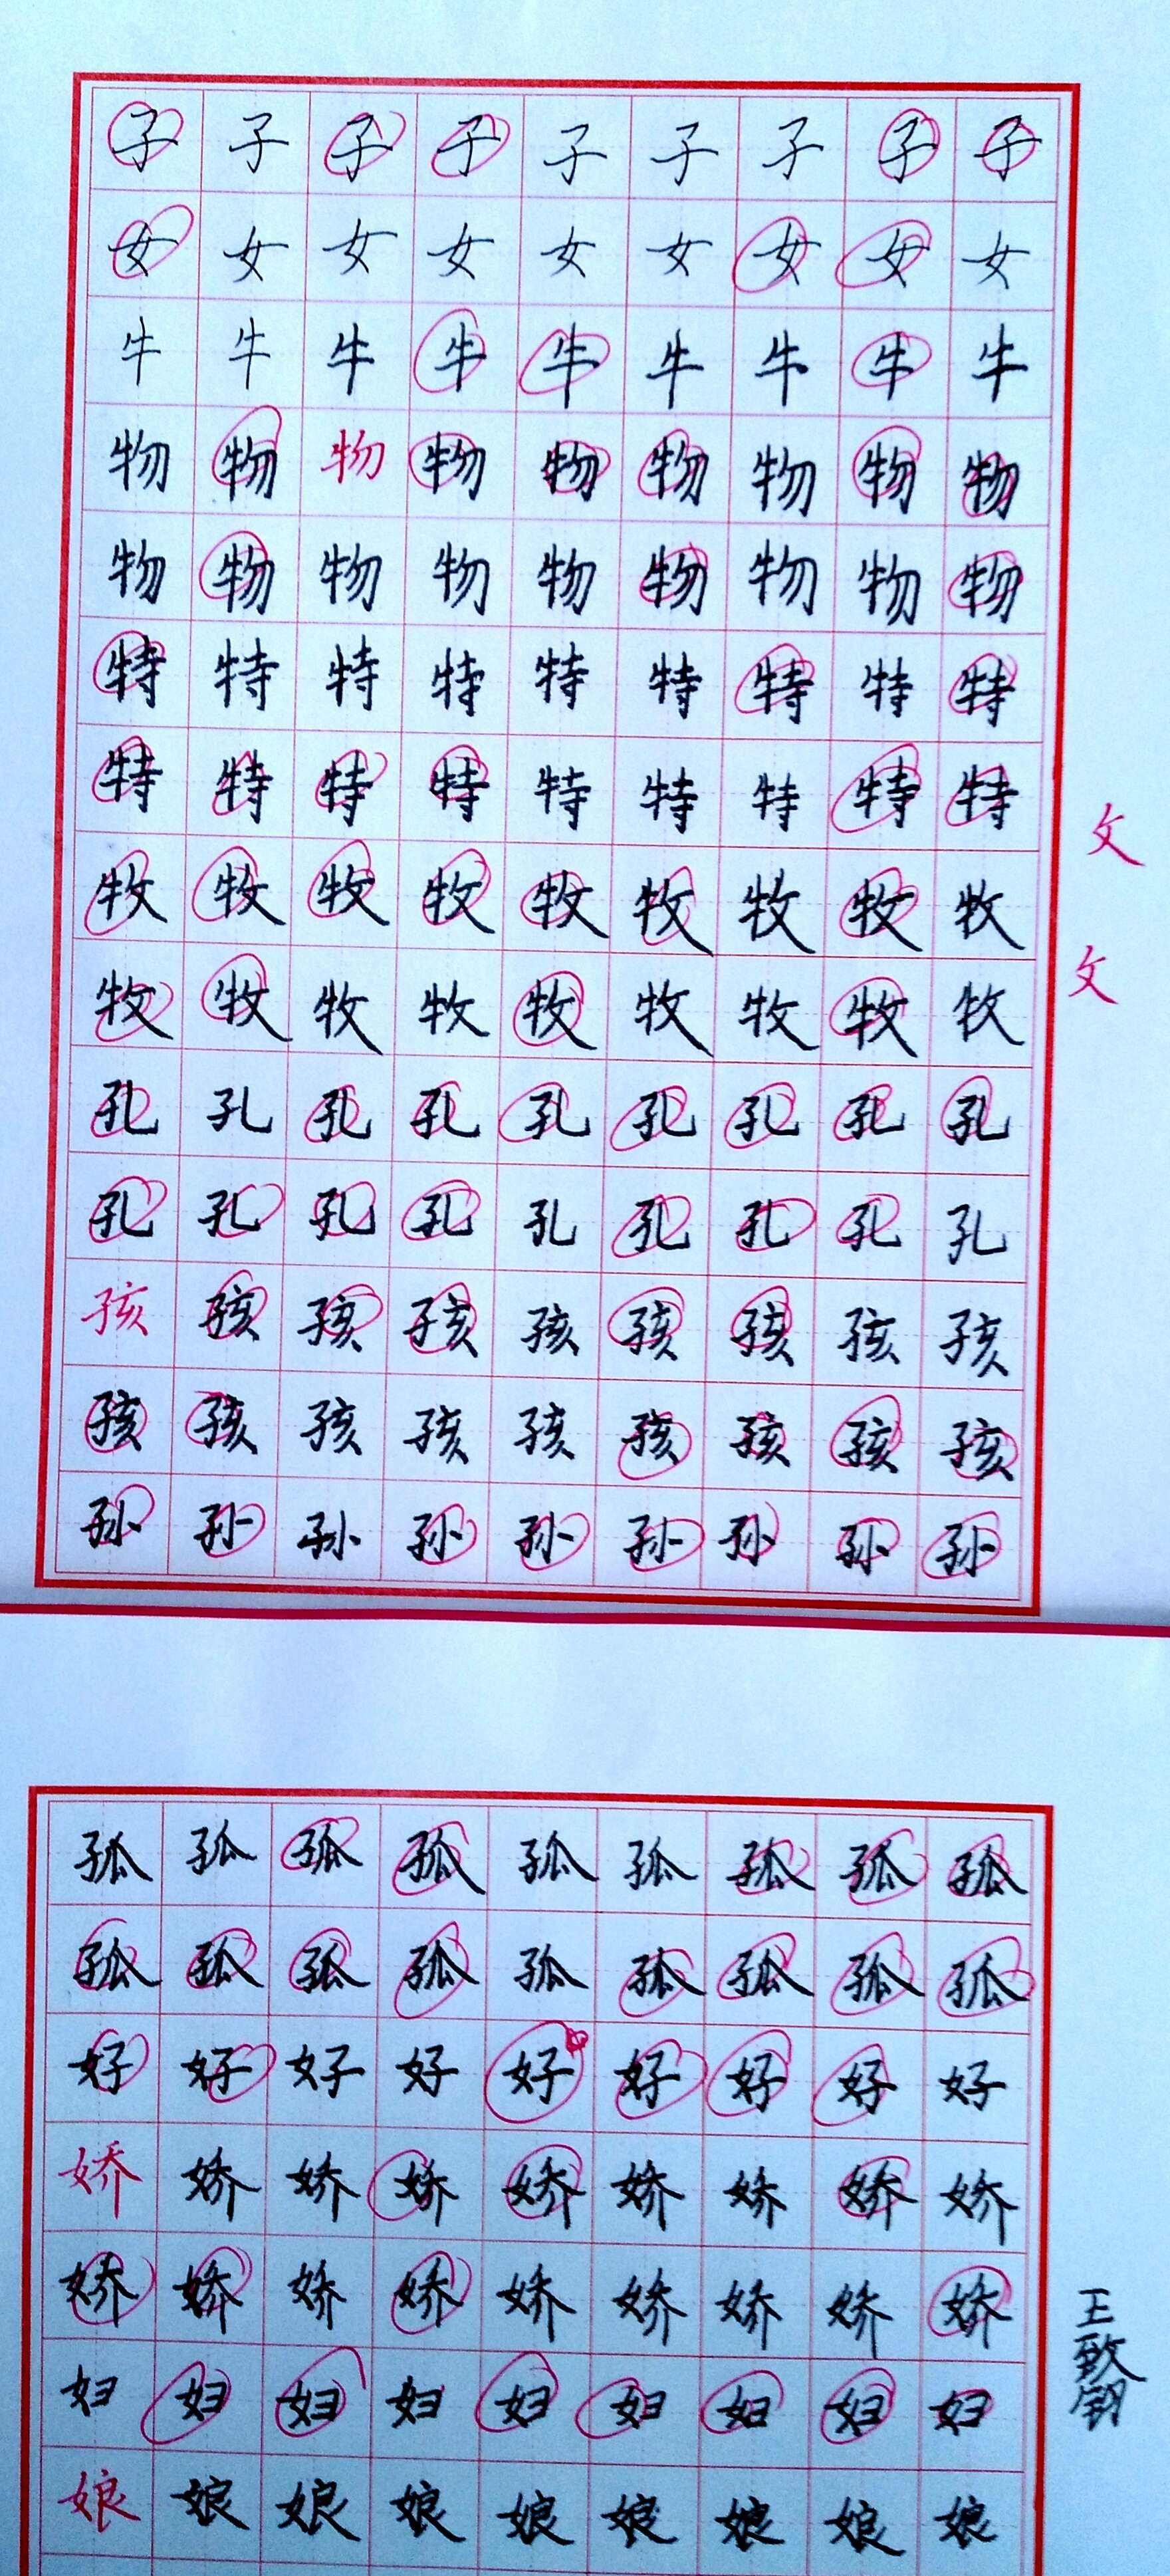 子子子子子子子子子
女女女女女女女女女
牛牛牛牛牛牛牛牛牛
物物物物物物物物物
物物物物物物物物物
特特特特特特特特特
特特特特特特特特特
攵
牧牧牧牧牧牧牧牧牧
攵
牧牧牧牧牧牧牧牧牧
孔孔孔孔孔孔孔孔孔
孔孔孔孔孔孔孔孔孔
孩孩孩孩孩孩孩孩孩
孩孩孩孩孩孩孩孩孩
孙孙孙孙孙孙孙孙孙
孤孤孤孤孤孤孤孤孤
孤孤孤孤孤孤孤孤孤
好好好好好好好好好
娇娇娇娇娇娇娇娇娇
娇娇娇娇娇娇娇娇娇
妇妇妇妇妇妇妇妇妇
娘娘娘娘娘娘娘娘娘
王致钢